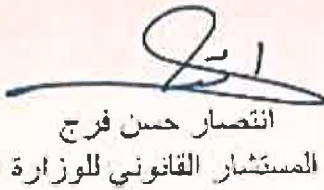 انتصار حسن فرج
المستشار القانوني للوزارة